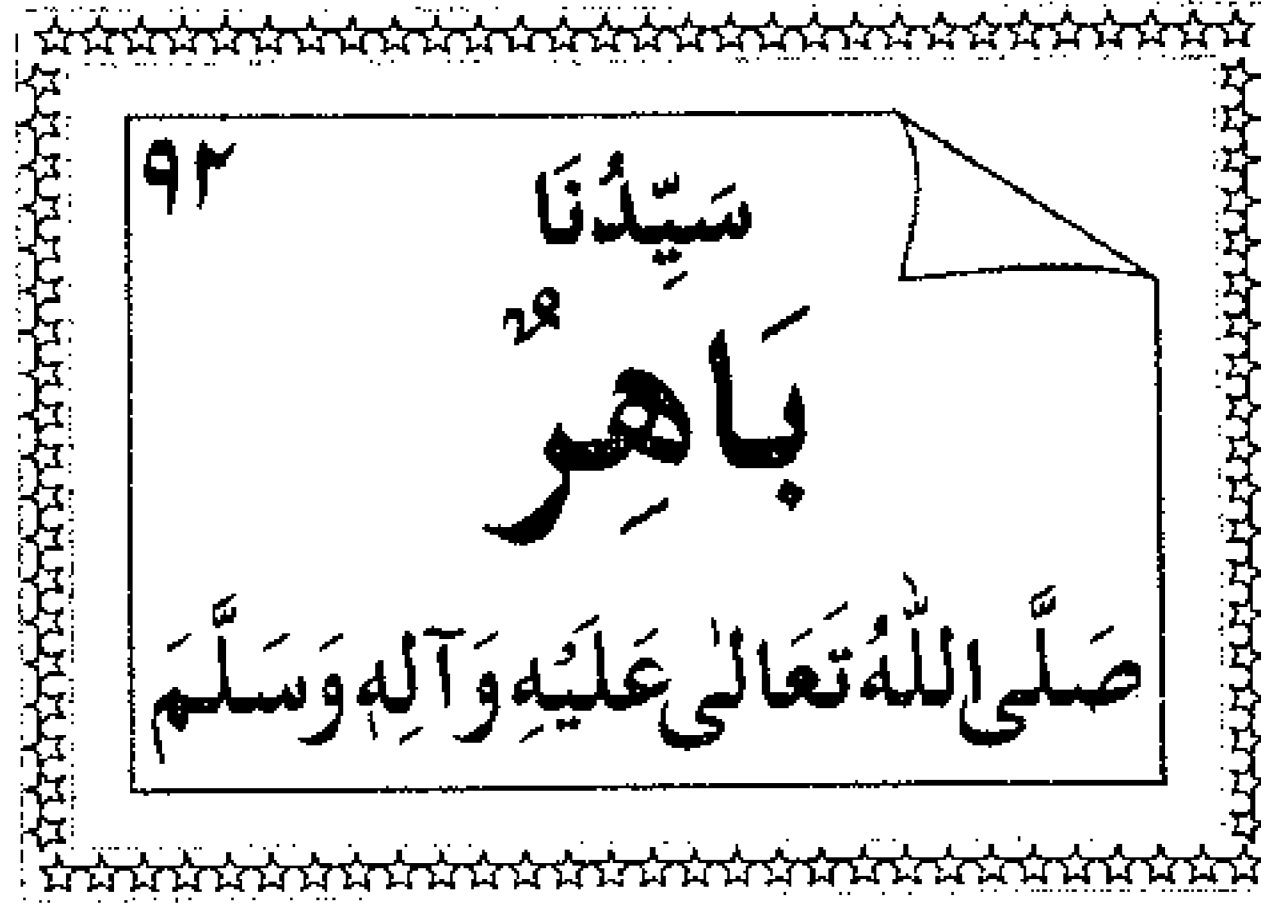 ۹۲
سَيِّدُنَا
بَاهِرٌ
صَلَّى اللّٰهُ تَعَالٰى عَلَيْهِ وَآلِهٖ وَسَلَّمَ